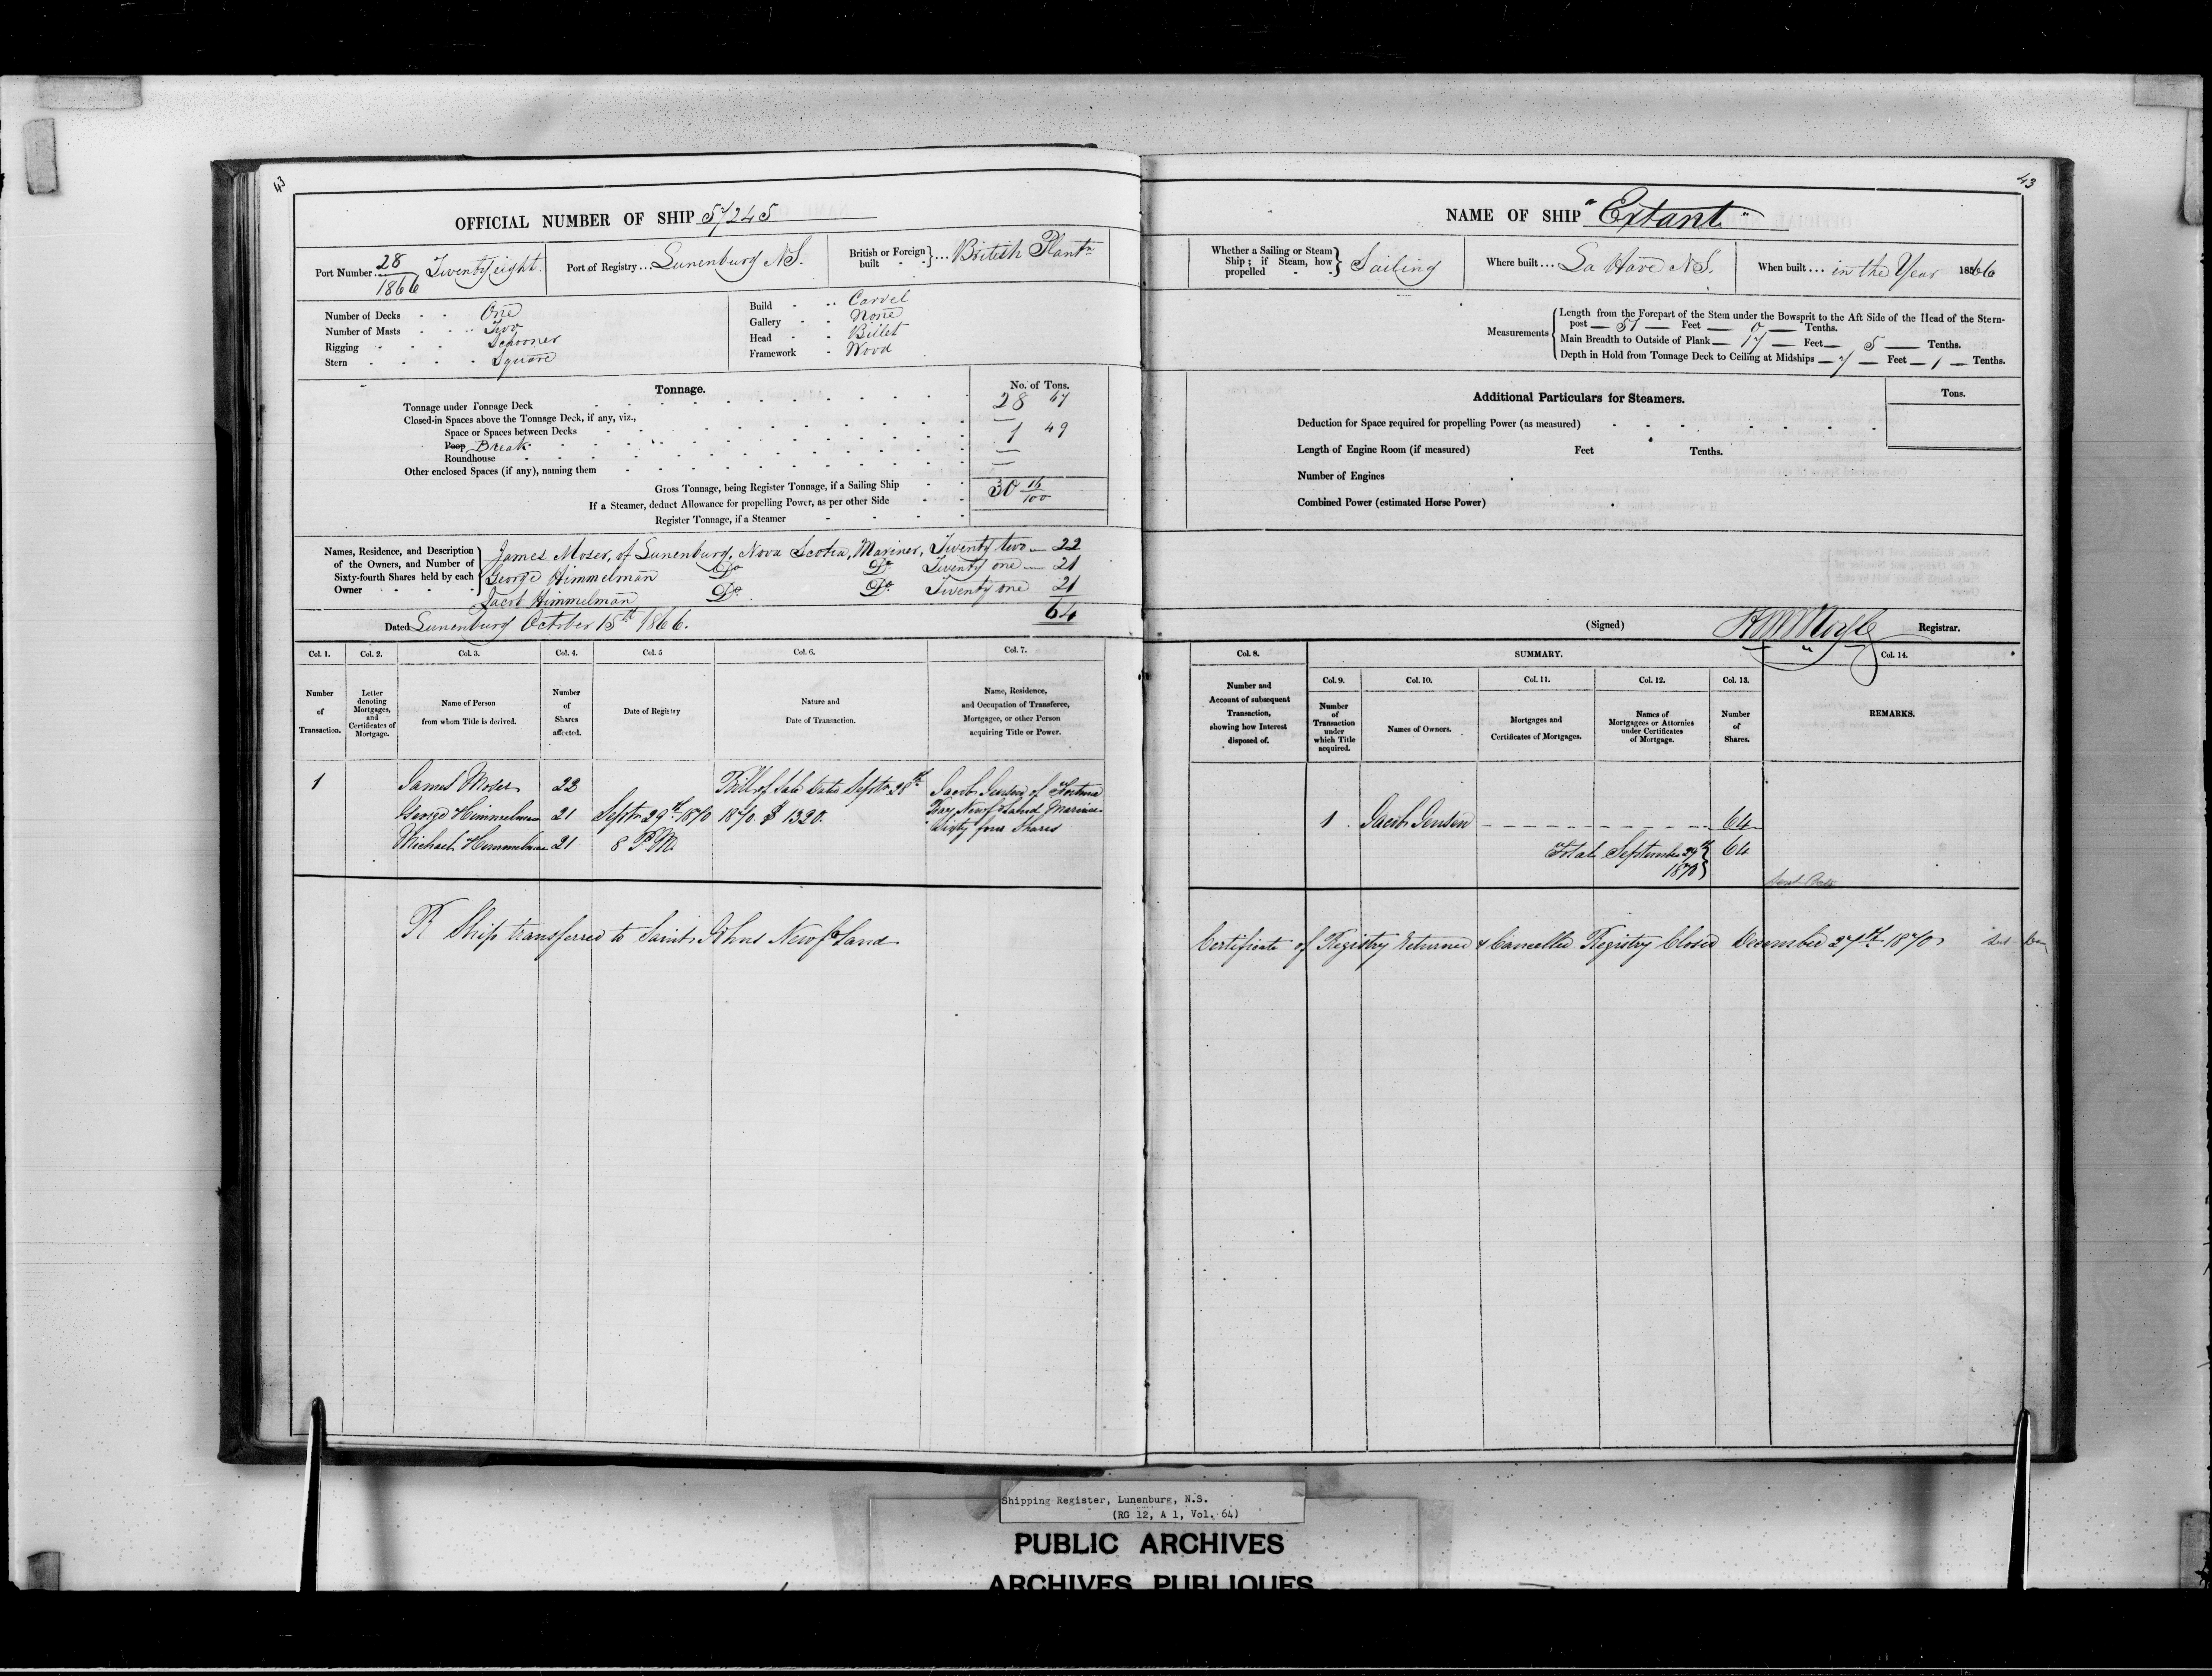 43
OFFICIAL NUMBER OF SHIP 57245
Port Number... 28/1866 Twenty eight.
Port of Registry... Lunenburg N.S.
British or Foreign built } ... British Plantn
Number of Decks - - One
Number of Masts - - Two
Rigging - - - Schooner
Stern - - - - Square
Build - .. Carvel
Gallery - - None
Head - - Billet
Framework - Wood
Tonnage.
No. of Tons.
Tonnage under Tonnage Deck 28 67
Closed-in Spaces above the Tonnage Deck, if any, viz.,
Space or Spaces between Decks —
Poop Break 1 49
Roundhouse —
Other enclosed Spaces (if any), naming them —
Gross Tonnage, being Register Tonnage, if a Sailing Ship 30 16/100
If a Steamer, deduct Allowance for propelling Power, as per other Side
Register Tonnage, if a Steamer
Names, Residence, and Description of the Owners, and Number of Sixty-fourth Shares held by each Owner
James Moser, of Lunenburg, Nova Scotia, Mariner, Twenty two — 22
George Himmelman Do Do Twenty one — 21
Jacob Himmelman Do Do Twenty one 21
64
Dated Lunenburg October 15th 1866.
Col. 1. Col. 2. Col. 3. Col. 4. Col. 5 Col. 6. Col. 7.
Number of Transaction.
Letter denoting Mortgages, and Certificates of Mortgage.
Name of Person from whom Title is derived.
Number of Shares affected.
Date of Registry
Nature and Date of Transaction.
Name, Residence, and Occupation of Transferee, Mortgagee, or other Person acquiring Title or Power.
1 James Moser 22 Bill of Sale Date Septr 28th Jacob Jensen of Fortune
George Himmelman 21 Septr 29th 1870 1870. $ 1320. Bay Newfoland Mariner
Michael Himmelman 21 8 P.M. Sixty four Shares
Ship transferred to Saint Johns Newfoland
43
NAME OF SHIP "Extant"
Whether a Sailing or Steam Ship; if Steam, how propelled } Sailing
Where built... La Have N.S.
When built... in the Year 1866
Measurements
Length from the Forepart of the Stem under the Bowsprit to the Aft Side of the Head of the Stern-
post — 51 — Feet — 0 — Tenths.
Main Breadth to Outside of Plank — 17 — Feet — 5 — Tenths.
Depth in Hold from Tonnage Deck to Ceiling at Midships — 7 — Feet — 1 — Tenths.
Additional Particulars for Steamers.
Tons.
Deduction for Space required for propelling Power (as measured)
Length of Engine Room (if measured) Feet Tenths.
Number of Engines
Combined Power (estimated Horse Power)
(Signed) Registrar.
Col. 8. SUMMARY. Col. 14.
Col. 9. Col. 10. Col. 11. Col. 12. Col. 13.
Number and Account of subsequent Transaction, showing how Interest disposed of.
Number of Transaction under which Title acquired.
Names of Owners.
Mortgages and Certificates of Mortgages.
Names of Mortgagees or Attornies under Certificates of Mortgage.
Number of Shares.
REMARKS.
1 Jacob Jensen 64
Total September 29th 1870 } 64
Certificate of Registry Returned & Cancelled Registry Closed December 27th 1870
Shipping Register, Lunenburg, N.S.
(RG 12, A 1, Vol. 64)
PUBLIC ARCHIVES
ARCHIVES PUBLIQUES